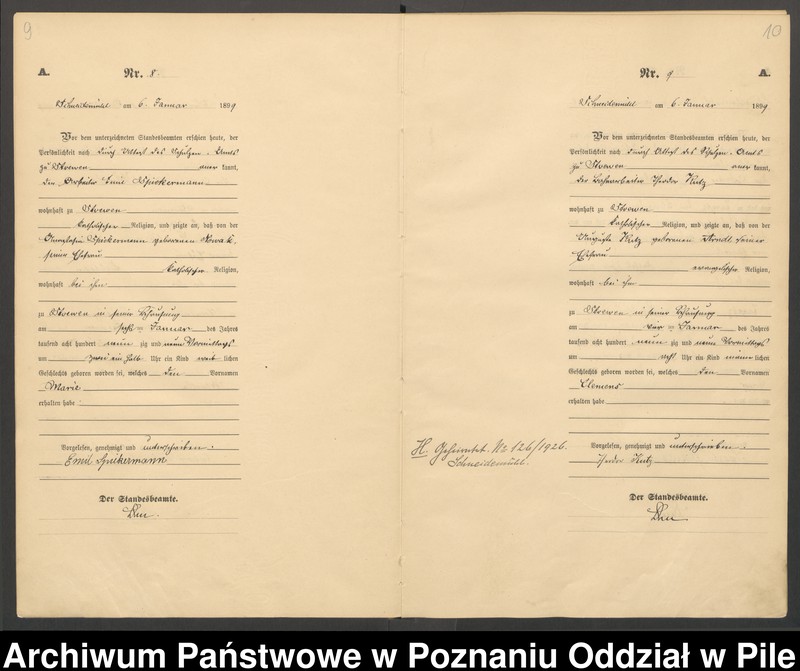 9
A.
Nr. 8.
Schneidemühl am 6. Januar 1899
Vor dem unterzeichneten Standesbeamten erschien heute, der
Persönlichkeit nach durch Attest des Schulzen-Amts
zu Stoewen aner kannt,
den Arbeiter Emil Spickermann
wohnhaft zu Stoewen
katholischer Religion, und zeigte an, daß von der
Spickermann geborenen Nowak,
seiner Ehefrau
katholischer Religion,
wohnhaft bei ihm
zu Stoewen in seiner Behausung
am sechs ten Januar des Jahres
tausend acht hundert neun zig und neun Vormittags
um zwei ein halb Uhr ein Kind weib lichen
Geschlechts geboren worden sei, welches den Vornamen
Marie
erhalten habe
Vorgelesen, genehmigt und unterschrieben:
Emil Spickermann
Der Standesbeamte.
10
Nr. 9
A.
Schneidemühl am 6. Januar 1899
Vor dem unterzeichneten Standesbeamten erschien heute, der
Persönlichkeit nach durch Attest des Schulzen-Amts
zu Stoewen aner kannt,
der Bahnarbeiter Theodor Kutz
wohnhaft zu Stoewen
katholischer Religion, und zeigte an, daß von der
Auguste Kutz geborenen Arndt seiner
Ehefrau
evangelischer Religion,
wohnhaft bei ihm
zu Stoewen in seiner Behausung
am vier ten Januar des Jahres
tausend acht hundert neun zig und neun Vormittags
um acht Uhr ein Kind männ lichen
Geschlechts geboren worden sei, welches den Vornamen
Clemens
erhalten habe
Vorgelesen, genehmigt und unterschrieben:
Theodor Kutz
Der Standesbeamte.
H. Geheiratet. Nr 126/1926.
Schneidemühl.
Archiwum Państwowe w Poznaniu Oddział w Pile